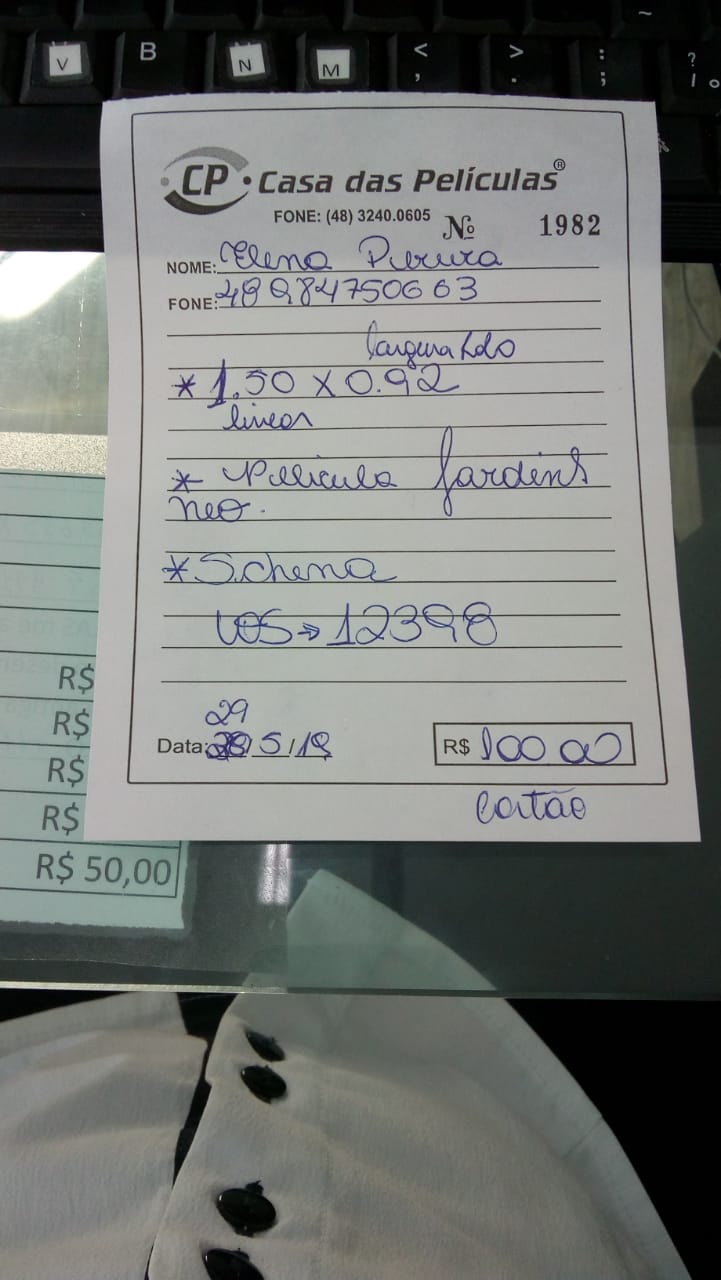 V B N M < , > . : ; ? /
CP Casa das Películas®
FONE: (48) 3240.0605 Nº 1982
NOME: Elena Pereira
FONE: 48984750663
largura
* 1.50 X 0.92
linear
* Pelicula Jardins
neo.
* S.chena
VOS → 12398
29
Data: 28/5/19 R$ 100 00
Cartão
R$
R$
R$
R$
R$ 50,00